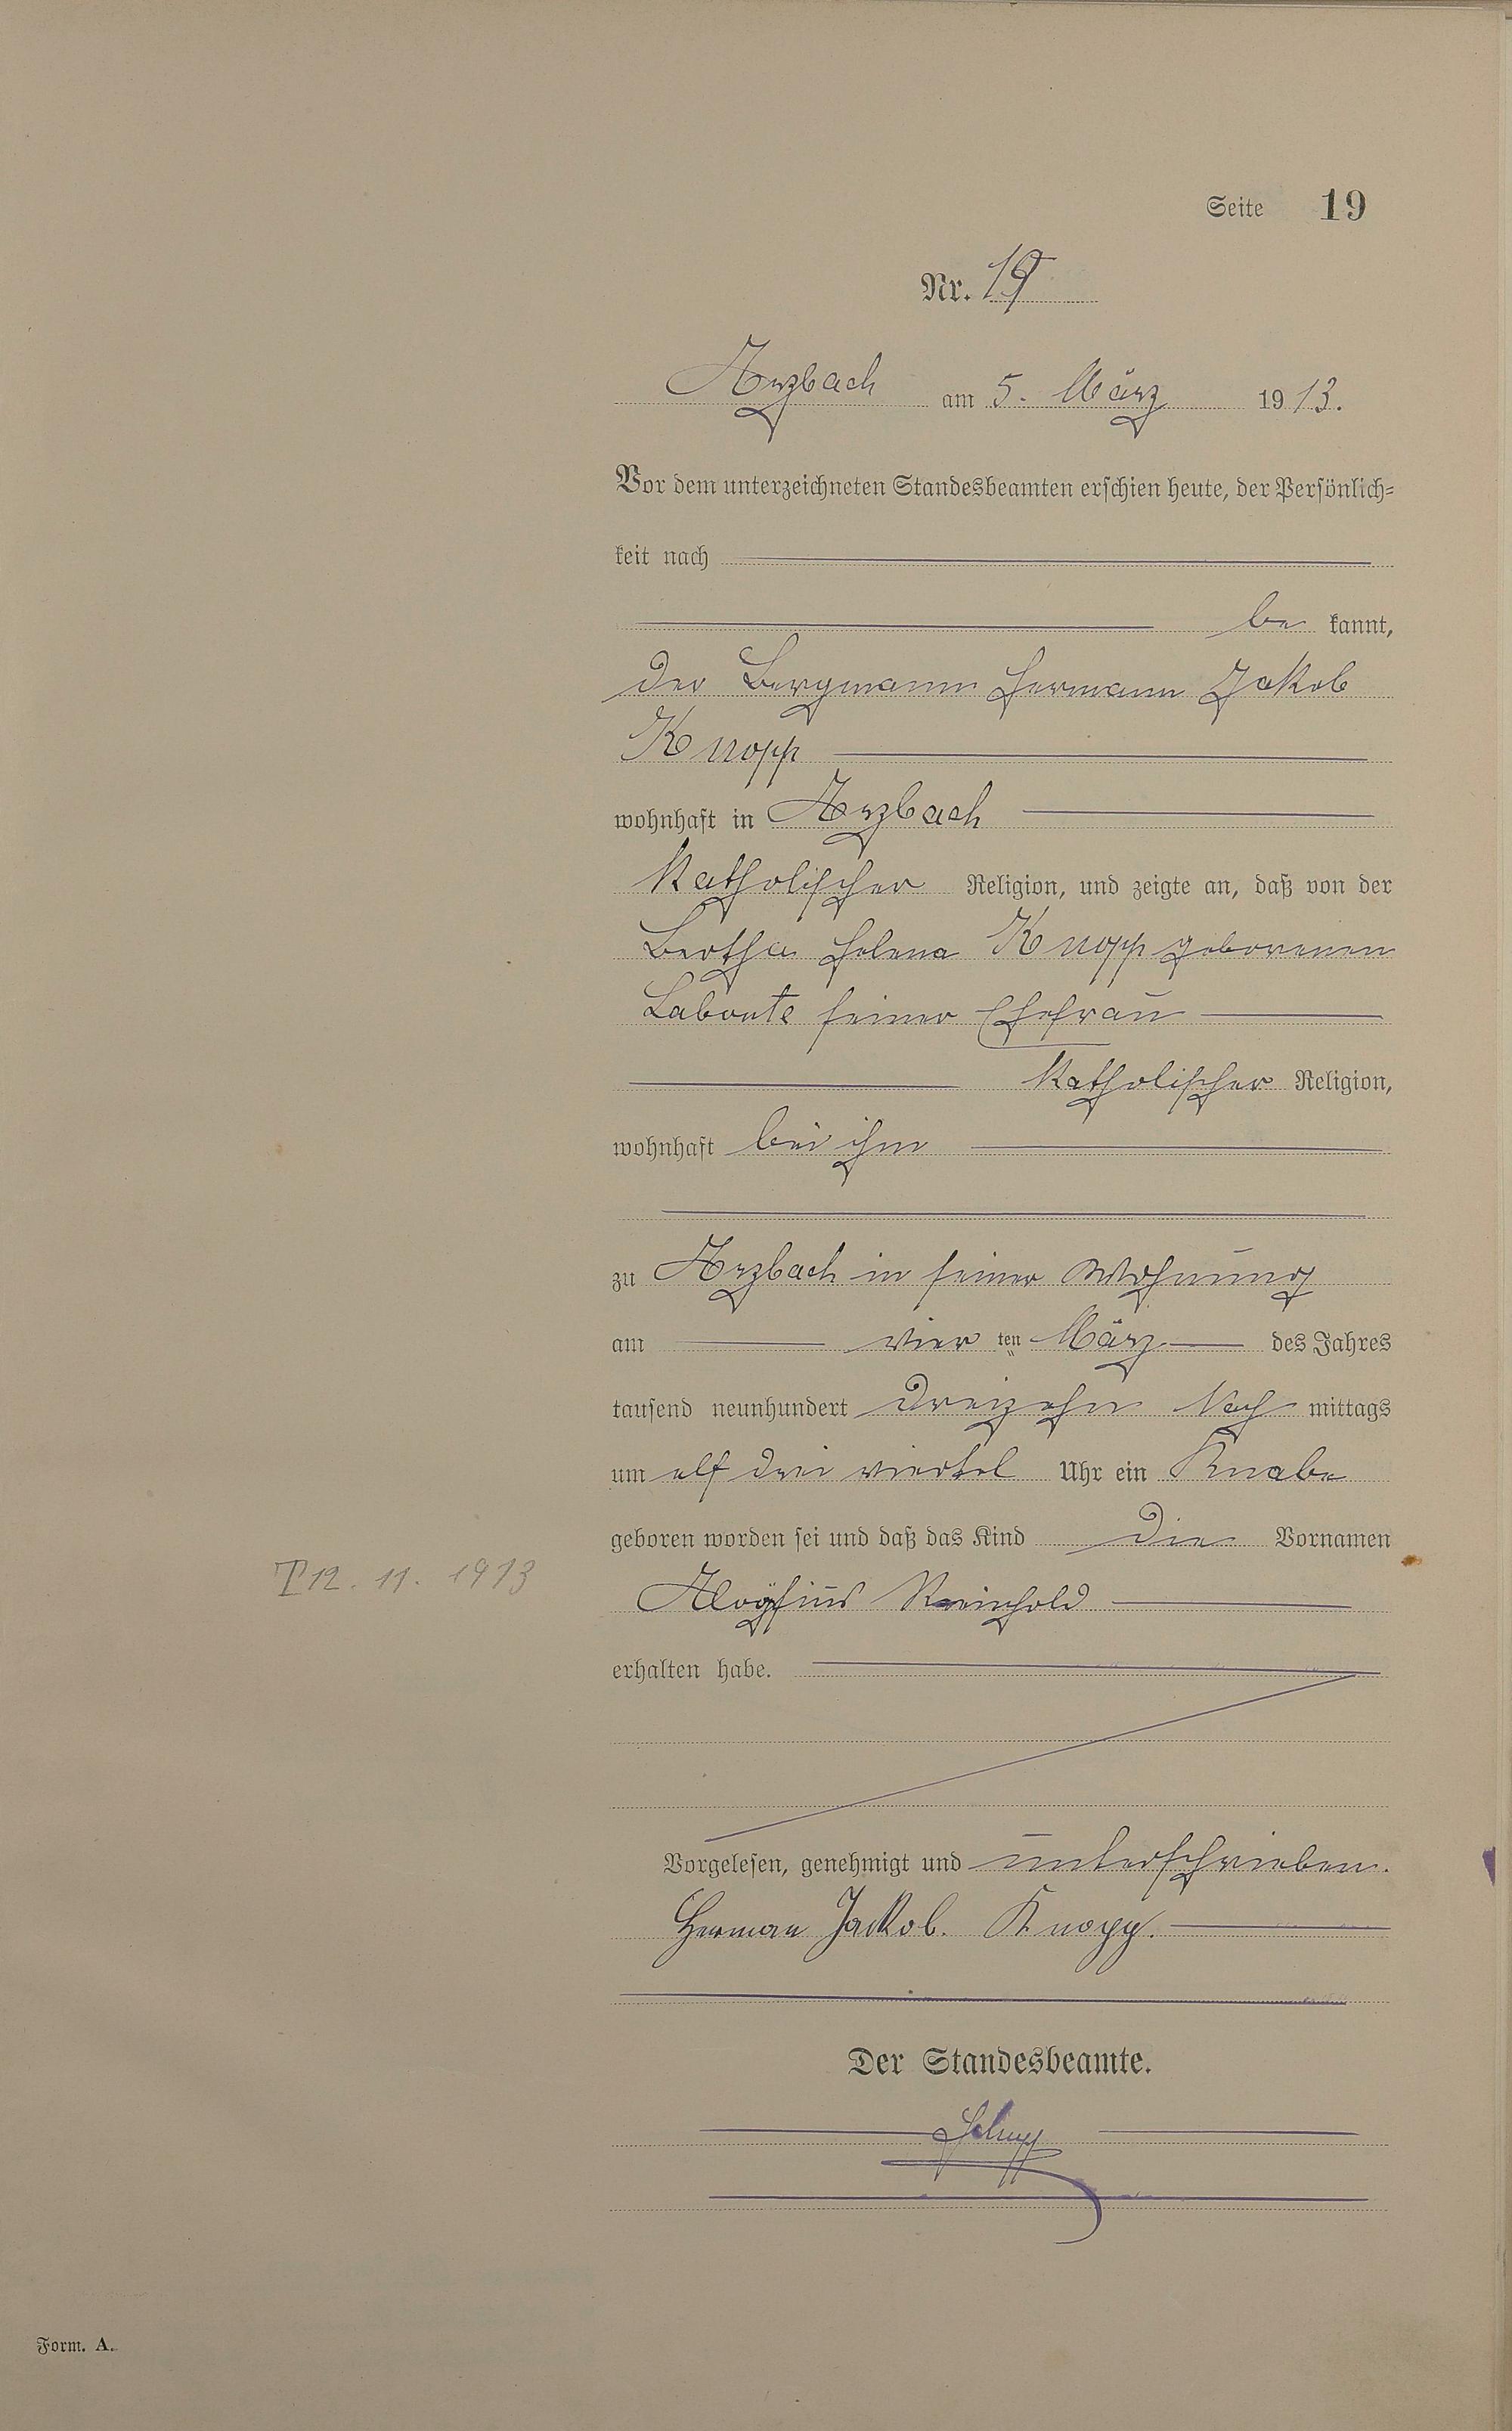 Seite 19
Nr. 19
Arzbach am 5. März 1913.
Vor dem unterzeichneten Standesbeamten erschien heute, der Persönlich=
keit nach
be kannt,
der Bergmann Hermann Jakob
Knopp
wohnhaft in Arzbach
katholischer Religion, und zeigte an, daß von der
Bertha Helena Knopp geborenen
Labonte seiner Ehefrau
katholischer Religion,
wohnhaft bei ihm
zu Arzbach in seiner Wohnung
am vier ten März des Jahres
tausend neunhundert dreizehn Nach mittags
um elf drei viertel Uhr ein Knabe
geboren worden sei und daß das Kind die Vornamen
12. 11. 1913
Aloÿsius Reinhold
erhalten habe.
Vorgelesen, genehmigt und unterschrieben.
Herman Jackob. Knopp.
Der Standesbeamte.
Form. A.